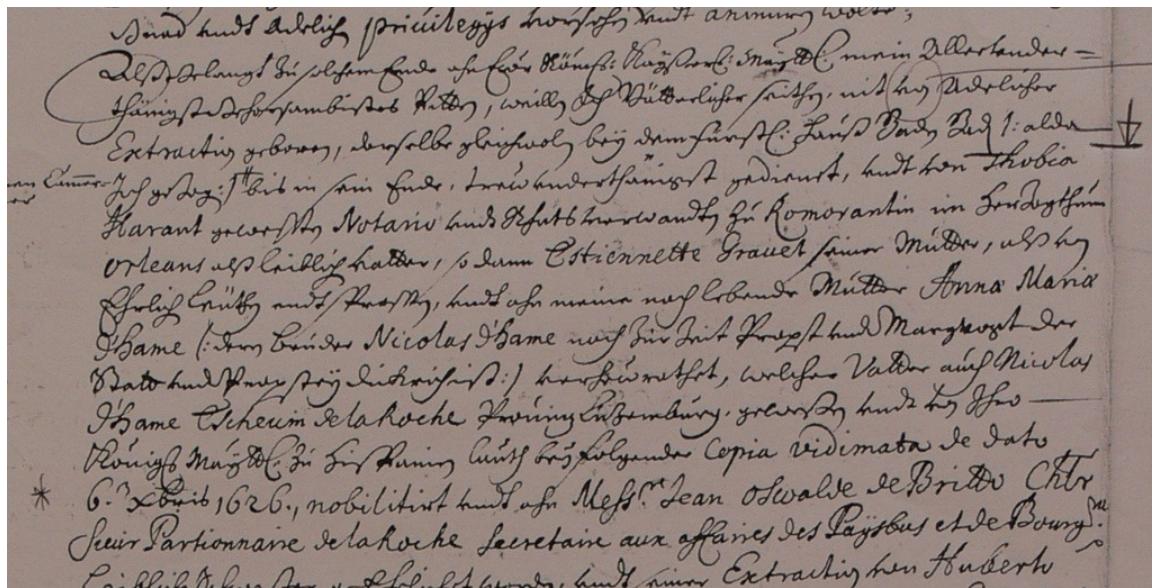 Stand undt Adelich privilegys vorsehen undt
Alß gelangt zu solchem Ende ahn Eür Röm: Kayserl: Mayttl: mein Allerunder=
thänigst gehorsambistes Bitten, weillen Ich Vätterlicher seithen, nit von Adelicher
Extraction geboren, derselbe gleichwol bey dem fürstl: Hauß Baden Baden /: alda
bis in sein Ende, trew underthänigst gedient, undt von Thobia
Harant geweßten Notario undt Rhatsverwandten zu Romorantin im Herzogthum
Orleans alß leiblich vatter, so dann Estiennette Grauet seiner Mutter, alß von
Ehrlich Leüthen undt ahn meine noch lebende Mutter Anna Maria
d'hame (: dern bruder Nicolas d'hame noch zur Zeit Propst undt Margvogt der
Statt undt Propstey dickrich ist:) verheurathet, welcher Vatter auch Nicolas
d'hame de la Roche Luxemburg. geweßen undt von Ihro
Königl: Mayttl: zu Hispanien lauth beyfolgender Copia vidimata de dato
6. Xbris 1626., nobilitirt undt ahn Jean Oswalde de Britto
Sieur Partionnaire de la Roche Secretaire aux affaires des Paysbas et de Bourg
undt seiner Extraction von Huberto